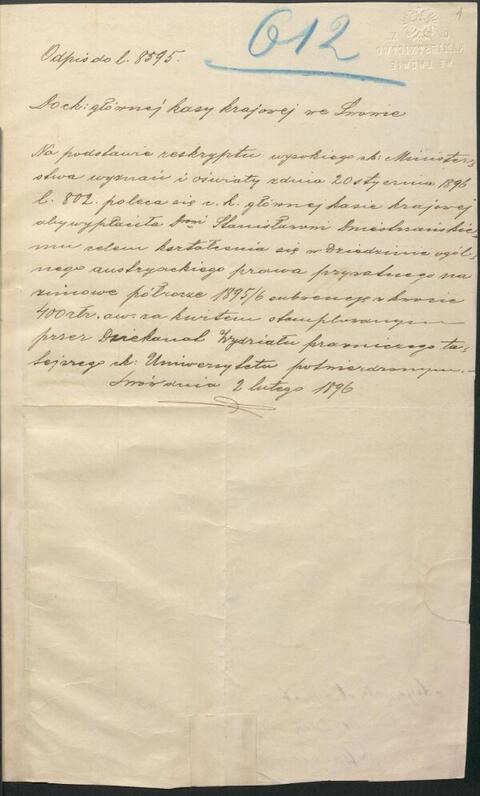 4
612
C. K.
NAMIESTNICTWO
WE LWOWIE
Odpis do l. 8595.
Do ck: głównej kasy krajowej we Lwowie
Na podstawie reskryptu wysokiego ck: Minister-
stwa wyznań i oświaty z dnia 20 stycznia 1896
l. 802. poleca się c. k. głównej kasie krajowej
aby wypłaciła Drowi Stanisławowi Dniestrzańskie-
mu celem kształcenia się w dziedzinie ogól-
nego austryackiego prawa prywatnego na
zimowe półrocze 1895/6 subwencję w kwocie
400 złr. aw: za kwitem stemplowanym
przez Dziekanat Wydziału prawniczego tu-
tejszego ck: Uniwersytetu potwierdzonym.—
Lwów dnia 2 lutego 1896